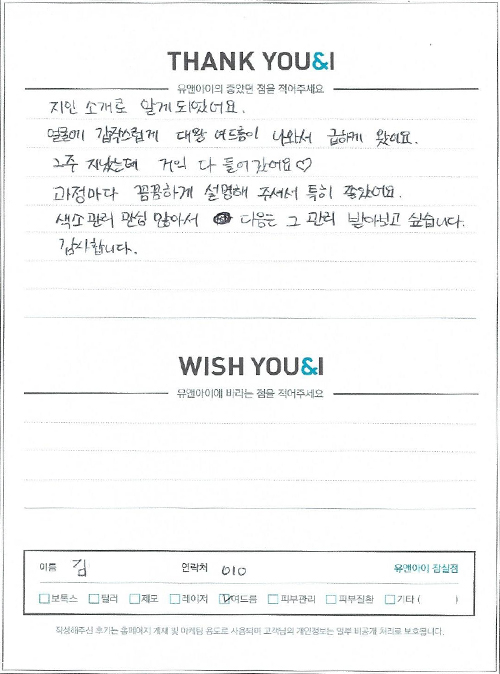 THANK YOU&I
유앤아이의 좋았던 점을 적어주세요
지인 소개로 알게되었어요.
얼굴에 갑작스럽게 대왕 여드름이 나와서 급하게 왔어요.
2주 지났는데 거의 다 들어갔어요♡
과정마다 꼼꼼하게 설명해 주셔서 특히 좋았어요.
색소관리 관심 많아서 다음는 그 관리 받아보고 싶습니다.
감사합니다.
WISH YOU&I
유앤아이에 바라는 점을 적어주세요
이름 김 연락처 010 유앤아이 잠실점
보톡스 필러 제모 레이저 여드름 피부관리 피부질환 기타 ( )
작성해주신 후기는 홈페이지 게재 및 마케팅 용도로 사용되며 고객님의 개인정보는 일부 비공개 처리로 보호됩니다.